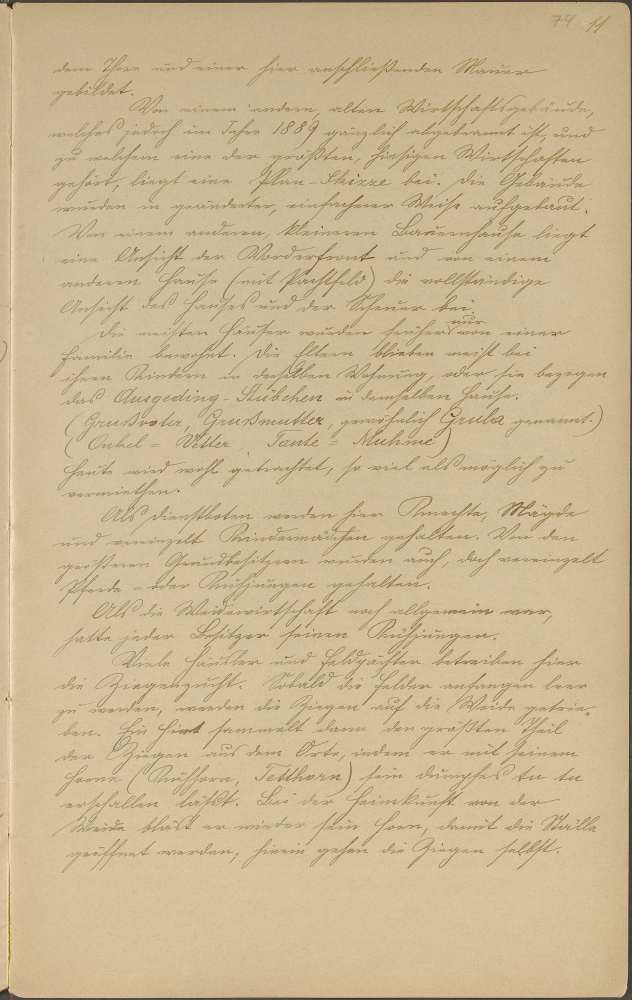 74 11
dem Thore und einer hier anschließenden Mauer
gebildet.
Von einem andern, alten Wirtschaftsgebäude,
welches jedoch im Jahre 1889 gänzlich abgebrannt ist, und
zu welchem eine der größten, hiesigen Wirtschaften
gehört, liegt eine Plan-Skizze bei. Die Gebäude
wurden in geänderter, einfacherer Weise aufgebaut.
Von einem anderen, kleineren Bauernhause liegt
eine Ansicht der Vorderfront und von einem
anderen Hause (mit Pachtfeld) die vollständige
Ansicht des Hauses und der Scheuer bei.
Die meisten Häuser wurden früher nur von einer
Familie bewohnt. Die Eltern blieben meist bei
ihren Kindern in derselben Wohnung, oder sie bezogen
das Ausgeding-Stübchen in demselben Hause.
(Grußvoter, Grußmutter, gewöhnlich Grula genannt.)
(Onkel = Vetter Tante = Muhme)
Heute wird wohl getrachtet, so viel als möglich zu
vermiethen.
Als Dienstboten werden hier Knechte, Mägde
und vereinzelt Kindermädchen gehalten. Von den
größeren Grundbesitzern wurden auch, doch vereinzelt
Pferde- oder Kuhjungen gehalten.
Als die Weidewirtschaft noch allgemein war,
hatte jeder Besitzer seinen Kuhjungen.
Viele Häusler und Feldpächter betreiben hier
die Ziegenzucht. Sobald die Felder anfangen leer
zu werden, werden die Ziegen auf die Weide getrie-
ben. Ein Hirt sammelt dann den größten Theil
der Ziegen aus dem Orte, indem er mit seinem
Horne (Kuhhorn, Tetthorn) sein dumpfes tu tu
erschallen läßt. Bei der Heimkunft von der
Weide bläst er wieder sein Horn, damit die Ställe
geöffnet werden; hinein gehen die Ziegen selbst.